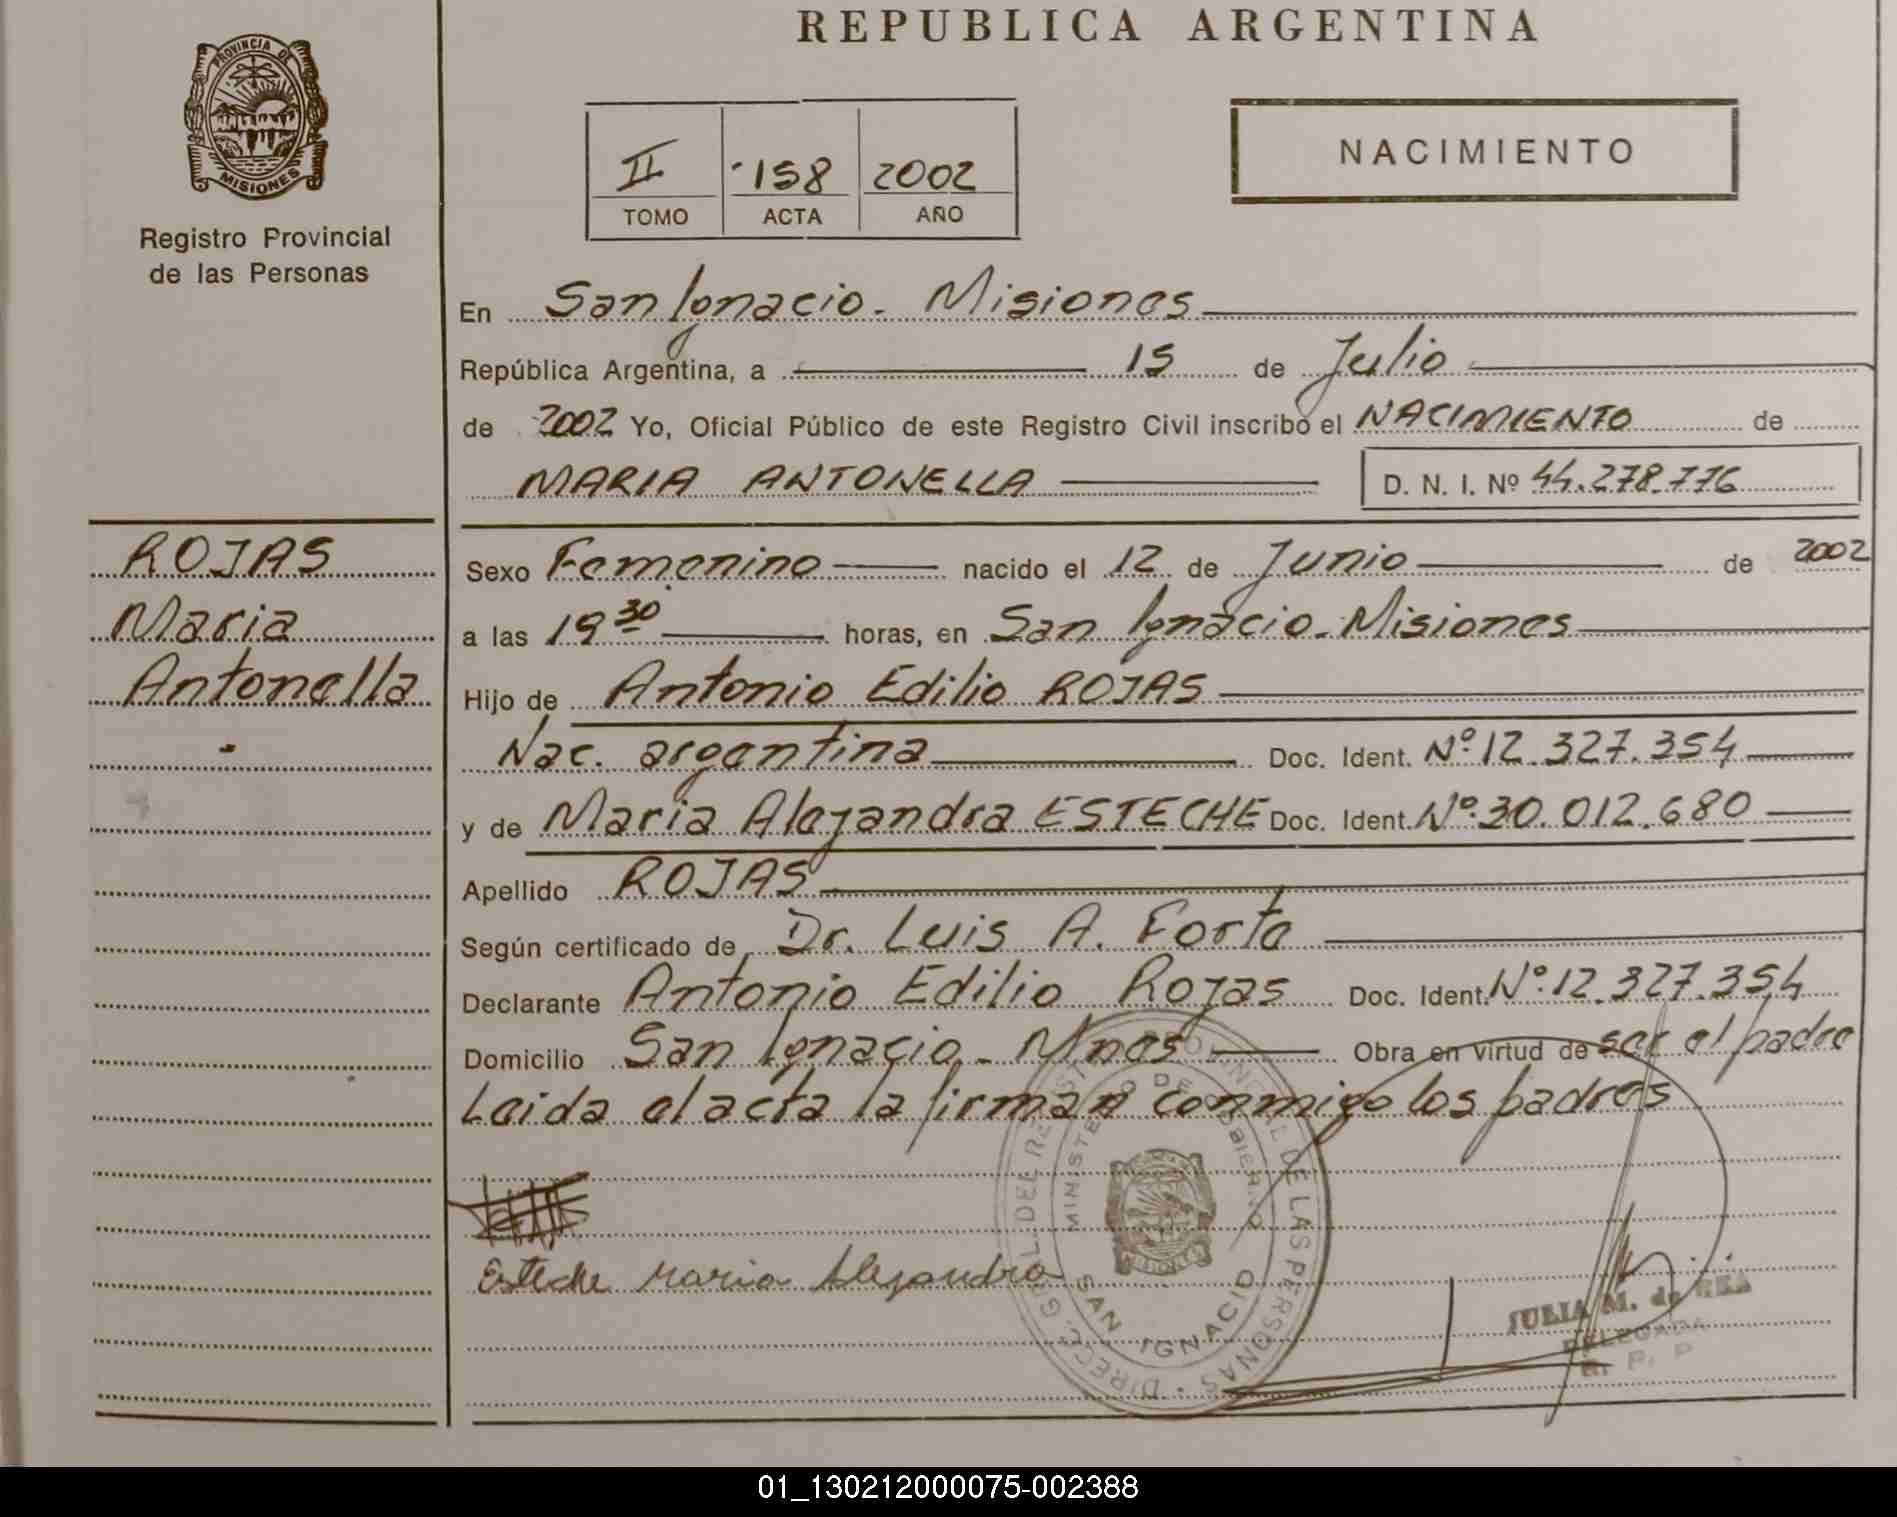 REPUBLICA ARGENTINA
PROVINCIA DE
MISIONES
Registro Provincial
de las Personas
II 158 2002
TOMO ACTA AÑO
NACIMIENTO
En San Ignacio - Misiones
República Argentina, a 15 de Julio
de 2002 Yo, Oficial Público de este Registro Civil inscribo el NACIMIENTO de
MARIA ANTONELLA D. N. I. Nº 44.278.776
ROJAS
Maria
Antonella
Sexo Femenino nacido el 12 de Junio de 2002
a las 19 30 horas, en San Ignacio - Misiones
Hijo de Antonio Edilio ROJAS
Nac. argentina Doc. Ident. Nº 12.327.354
y de Maria Alejandra ESTECHE Doc. Ident. Nº 30.012.680
Apellido ROJAS
Según certificado de Dr. Luis A. Forte
Declarante Antonio Edilio Rojas Doc. Ident. Nº 12.327.354
Domicilio San Ignacio - Mnes Obra en virtud de ser el padre
Leida el acta la firman conmigo los padres
Esteche Maria Alejandra
DIREC. GRAL. DEL REGISTRO PROVINCIAL DE LAS PERSONAS
MINISTERIO DE GOBIERNO
SAN IGNACIO
JULIA M. de REA
DELEGADA
R. P. P
01_130212000075-002388